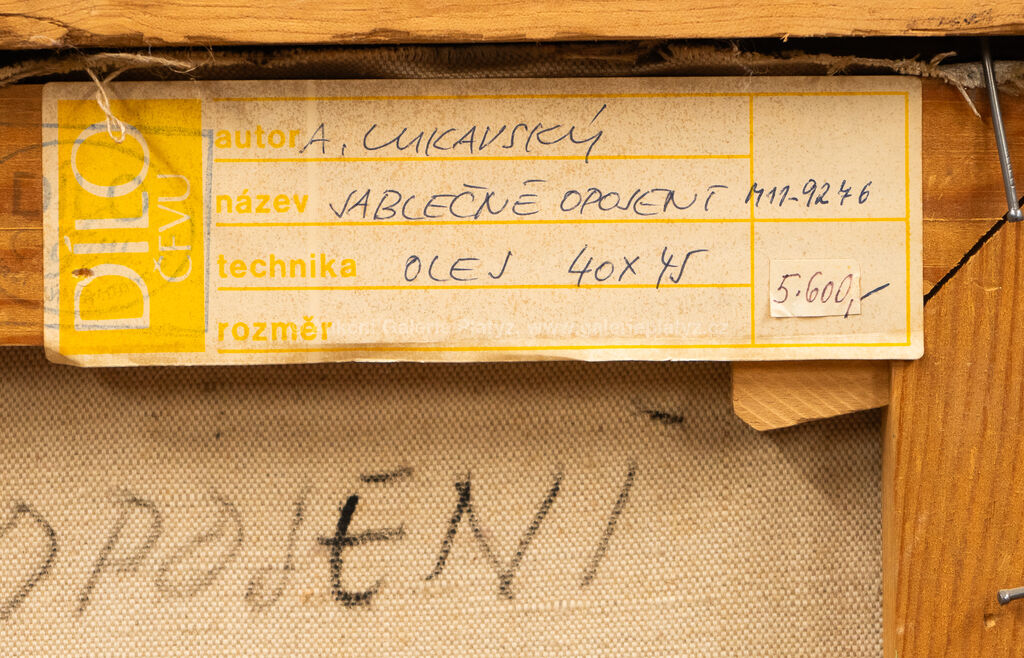 DÍLO
ČFVU
autor A. LUKAVSKÝ
název JABLEČNÉ OPOJENÍ M11-9276
technika OLEJ 40X45
5.600,-
rozměr
Galerie Platýz, www.galerieplatyz.cz
OPOJENÍ